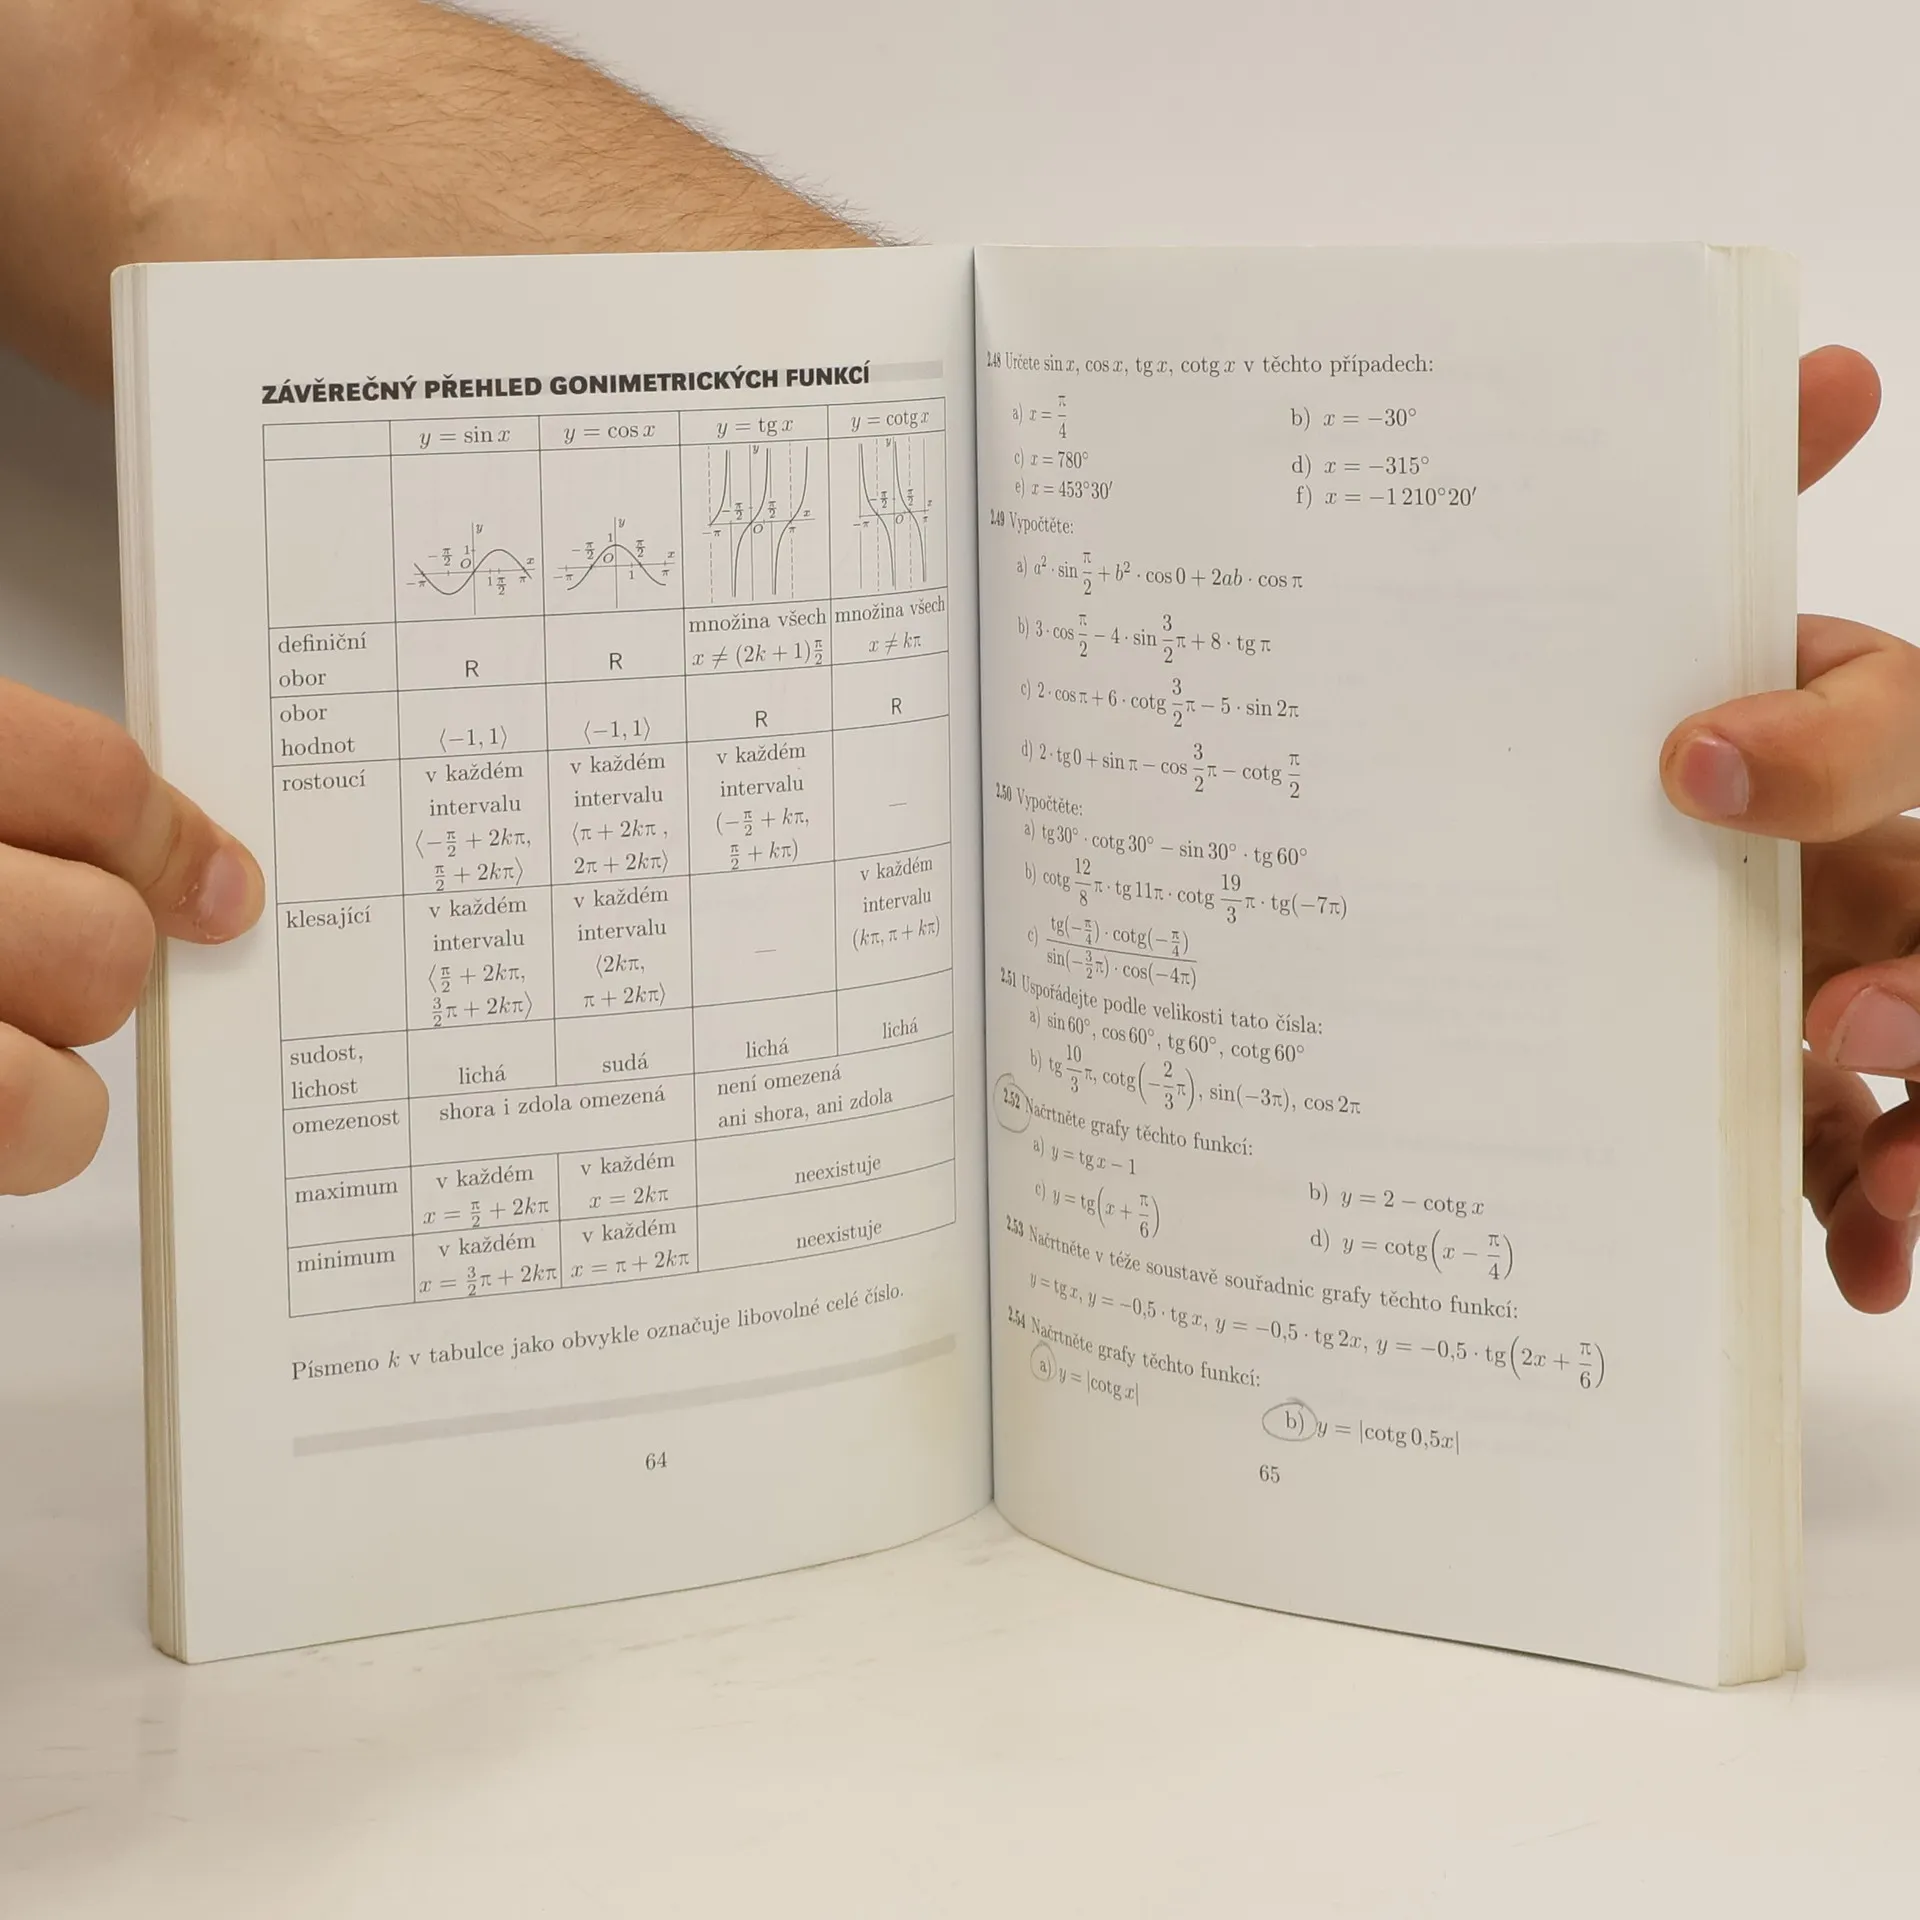 ZÁVĚREČNÝ PŘEHLED GONIMETRICKÝCH FUNKCÍ
y = sin x y = cos x y = tg x y = cotg x
definiční obor R R množina všech x ≠ (2k + 1)π/2 množina všech x ≠ kπ
obor hodnot ⟨−1, 1⟩ ⟨−1, 1⟩ R R
rostoucí v každém intervalu ⟨−π/2 + 2kπ, π/2 + 2kπ⟩ v každém intervalu ⟨π + 2kπ, 2π + 2kπ⟩ v každém intervalu (−π/2 + kπ, π/2 + kπ) —
klesající v každém intervalu ⟨π/2 + 2kπ, 3/2π + 2kπ⟩ v každém intervalu ⟨2kπ, π + 2kπ⟩ — v každém intervalu (kπ, π + kπ)
sudost, lichost lichá sudá lichá lichá
omezenost shora i zdola omezená není omezená ani shora, ani zdola
maximum v každém x = π/2 + 2kπ v každém x = 2kπ neexistuje
minimum v každém x = 3/2π + 2kπ v každém x = π + 2kπ neexistuje
Písmeno k v tabulce jako obvykle označuje libovolné celé číslo.
64
2.48 Určete sin x, cos x, tg x, cotg x v těchto případech:
a) x = π/4 b) x = −30°
c) x = 780° d) x = −315°
e) x = 453°30′ f) x = −1 210°20′
2.49 Vypočtěte:
a) a² · sin π/2 + b² · cos 0 + 2ab · cos π
b) 3 · cos π/2 − 4 · sin 3/2π + 8 · tg π
c) 2 · cos π + 6 · cotg 3/2π − 5 · sin 2π
d) 2 · tg 0 + sin π − cos 3/2π − cotg π/2
2.50 Vypočtěte:
a) tg 30° · cotg 30° − sin 30° · tg 60°
b) cotg 12/8π · tg 11π · cotg 19/3π · tg(−7π)
c) tg(−π/4) · cotg(−π/4) / sin(−3/2π) · cos(−4π)
2.51 Uspořádejte podle velikosti tato čísla:
a) sin 60°, cos 60°, tg 60°, cotg 60°
b) tg 10/3π, cotg(−2/3π), sin(−3π), cos 2π
2.52 Načrtněte grafy těchto funkcí:
a) y = tg x − 1 b) y = 2 − cotg x
c) y = tg(x + π/6) d) y = cotg(x − π/4)
2.53 Načrtněte v téže soustavě souřadnic grafy těchto funkcí:
y = tg x, y = −0,5 · tg x, y = −0,5 · tg 2x, y = −0,5 · tg(2x + π/6)
2.54 Načrtněte grafy těchto funkcí:
a) y = |cotg x| b) y = |cotg 0,5x|
65